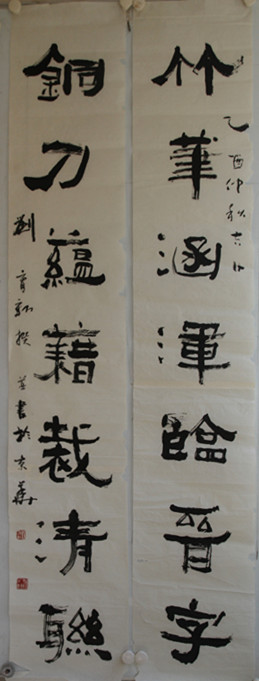 竹筆涵渾臨晉字
乙酉仲秋吉日
銅刀蘊藉裁青聯
劉育新撰並書於京華